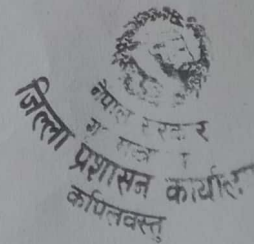 नेपाल सरकार
गृ
जिल्ला प्रशासन कार्याल
कपिलवस्तु